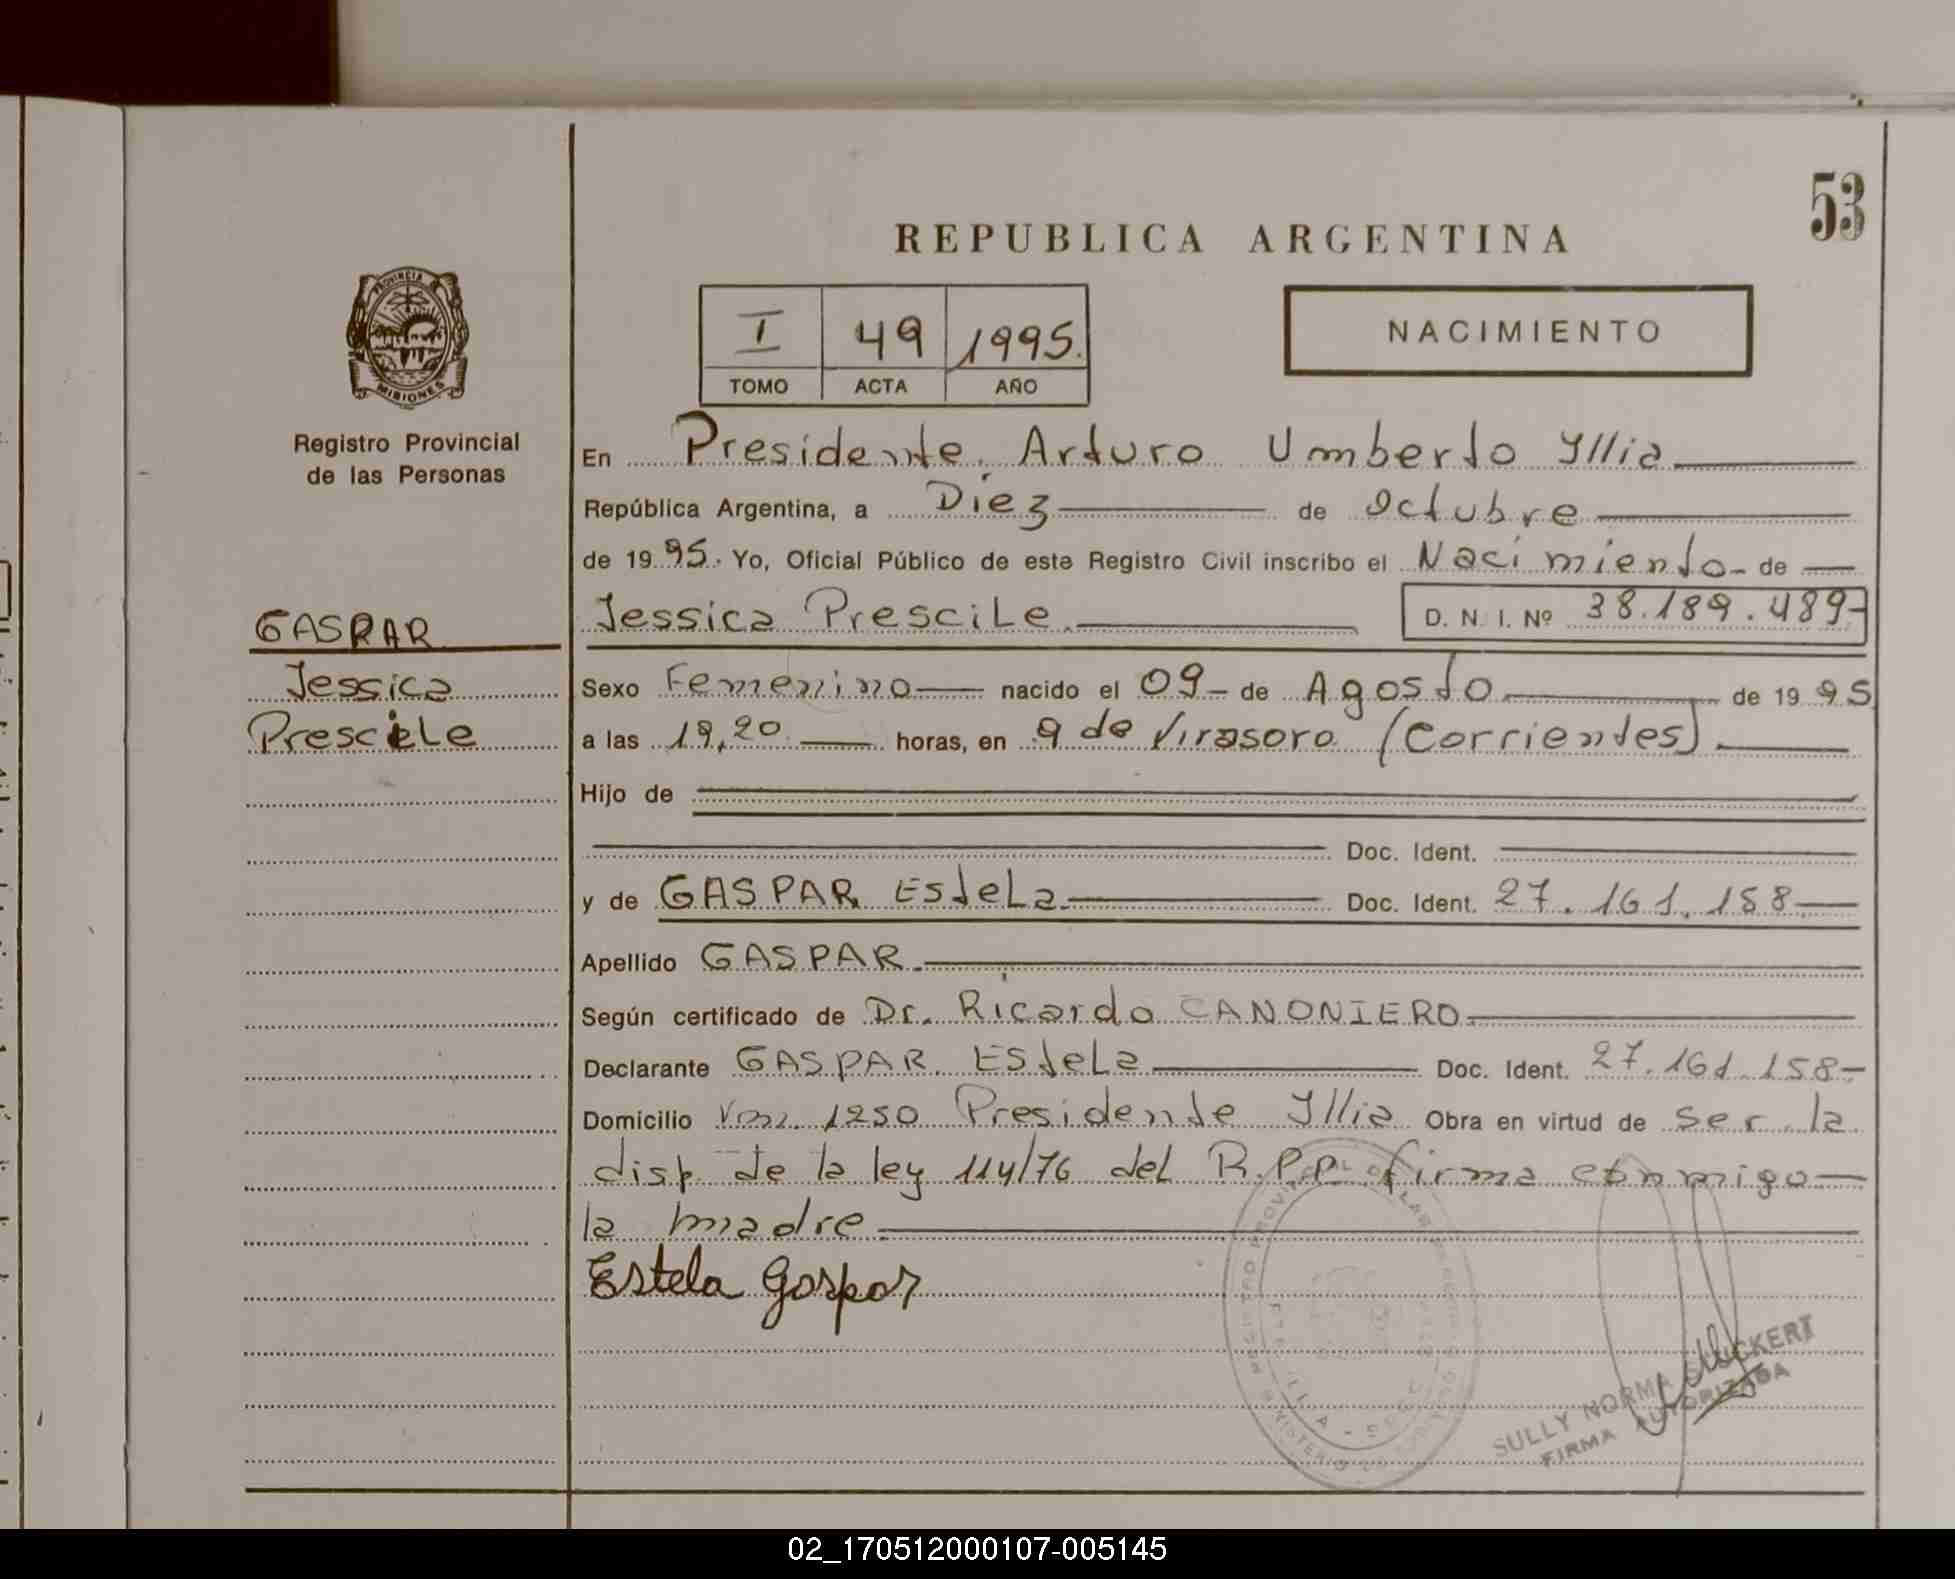 53
REPUBLICA ARGENTINA
PROVINCIA
MISIONES
Registro Provincial
de las Personas
I 49 1995.
TOMO ACTA AÑO
NACIMIENTO
En Presidente Arturo Umberto Yllia
República Argentina, a Diez de Octubre
de 1995. Yo, Oficial Público de este Registro Civil inscribo el Nacimiento de
Jessica Prescile D. N. I. Nº 38.189.489-
GASPAR
Jessica
Prescile
Sexo Femenino nacido el 09 de Agosto de 1995
a las 19,20 horas, en g de Virasoro (Corrientes)
Hijo de
Doc. Ident.
y de GASPAR Estela Doc. Ident. 27.161.158
Apellido GASPAR
Según certificado de Dr. Ricardo CANONIERO
Declarante GASPAR Estela Doc. Ident. 27.161.158-
Domicilio 1250 Presidente Yllia Obra en virtud de ser la
disp. de la ley 114/76 del R.P.P. firma conmigo
la madre
Estela Gaspar
SULLY NORMA
FIRMA AUTORIZADA
02_170512000107-005145